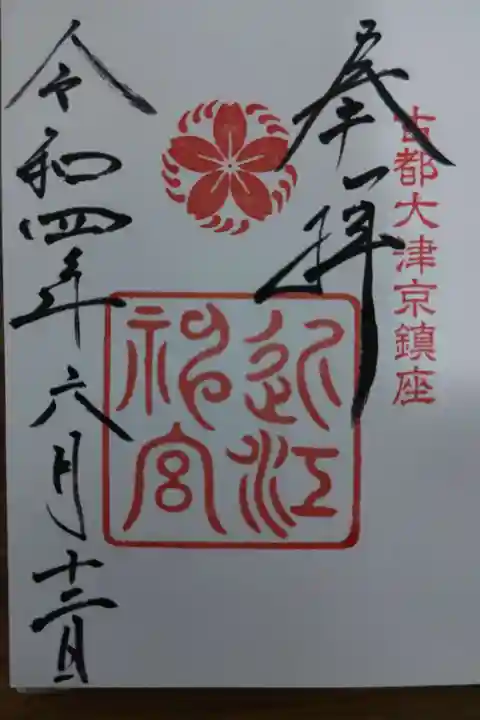 古都大津京鎮座
奉拝
近江
神宮
令和四年六月十二日